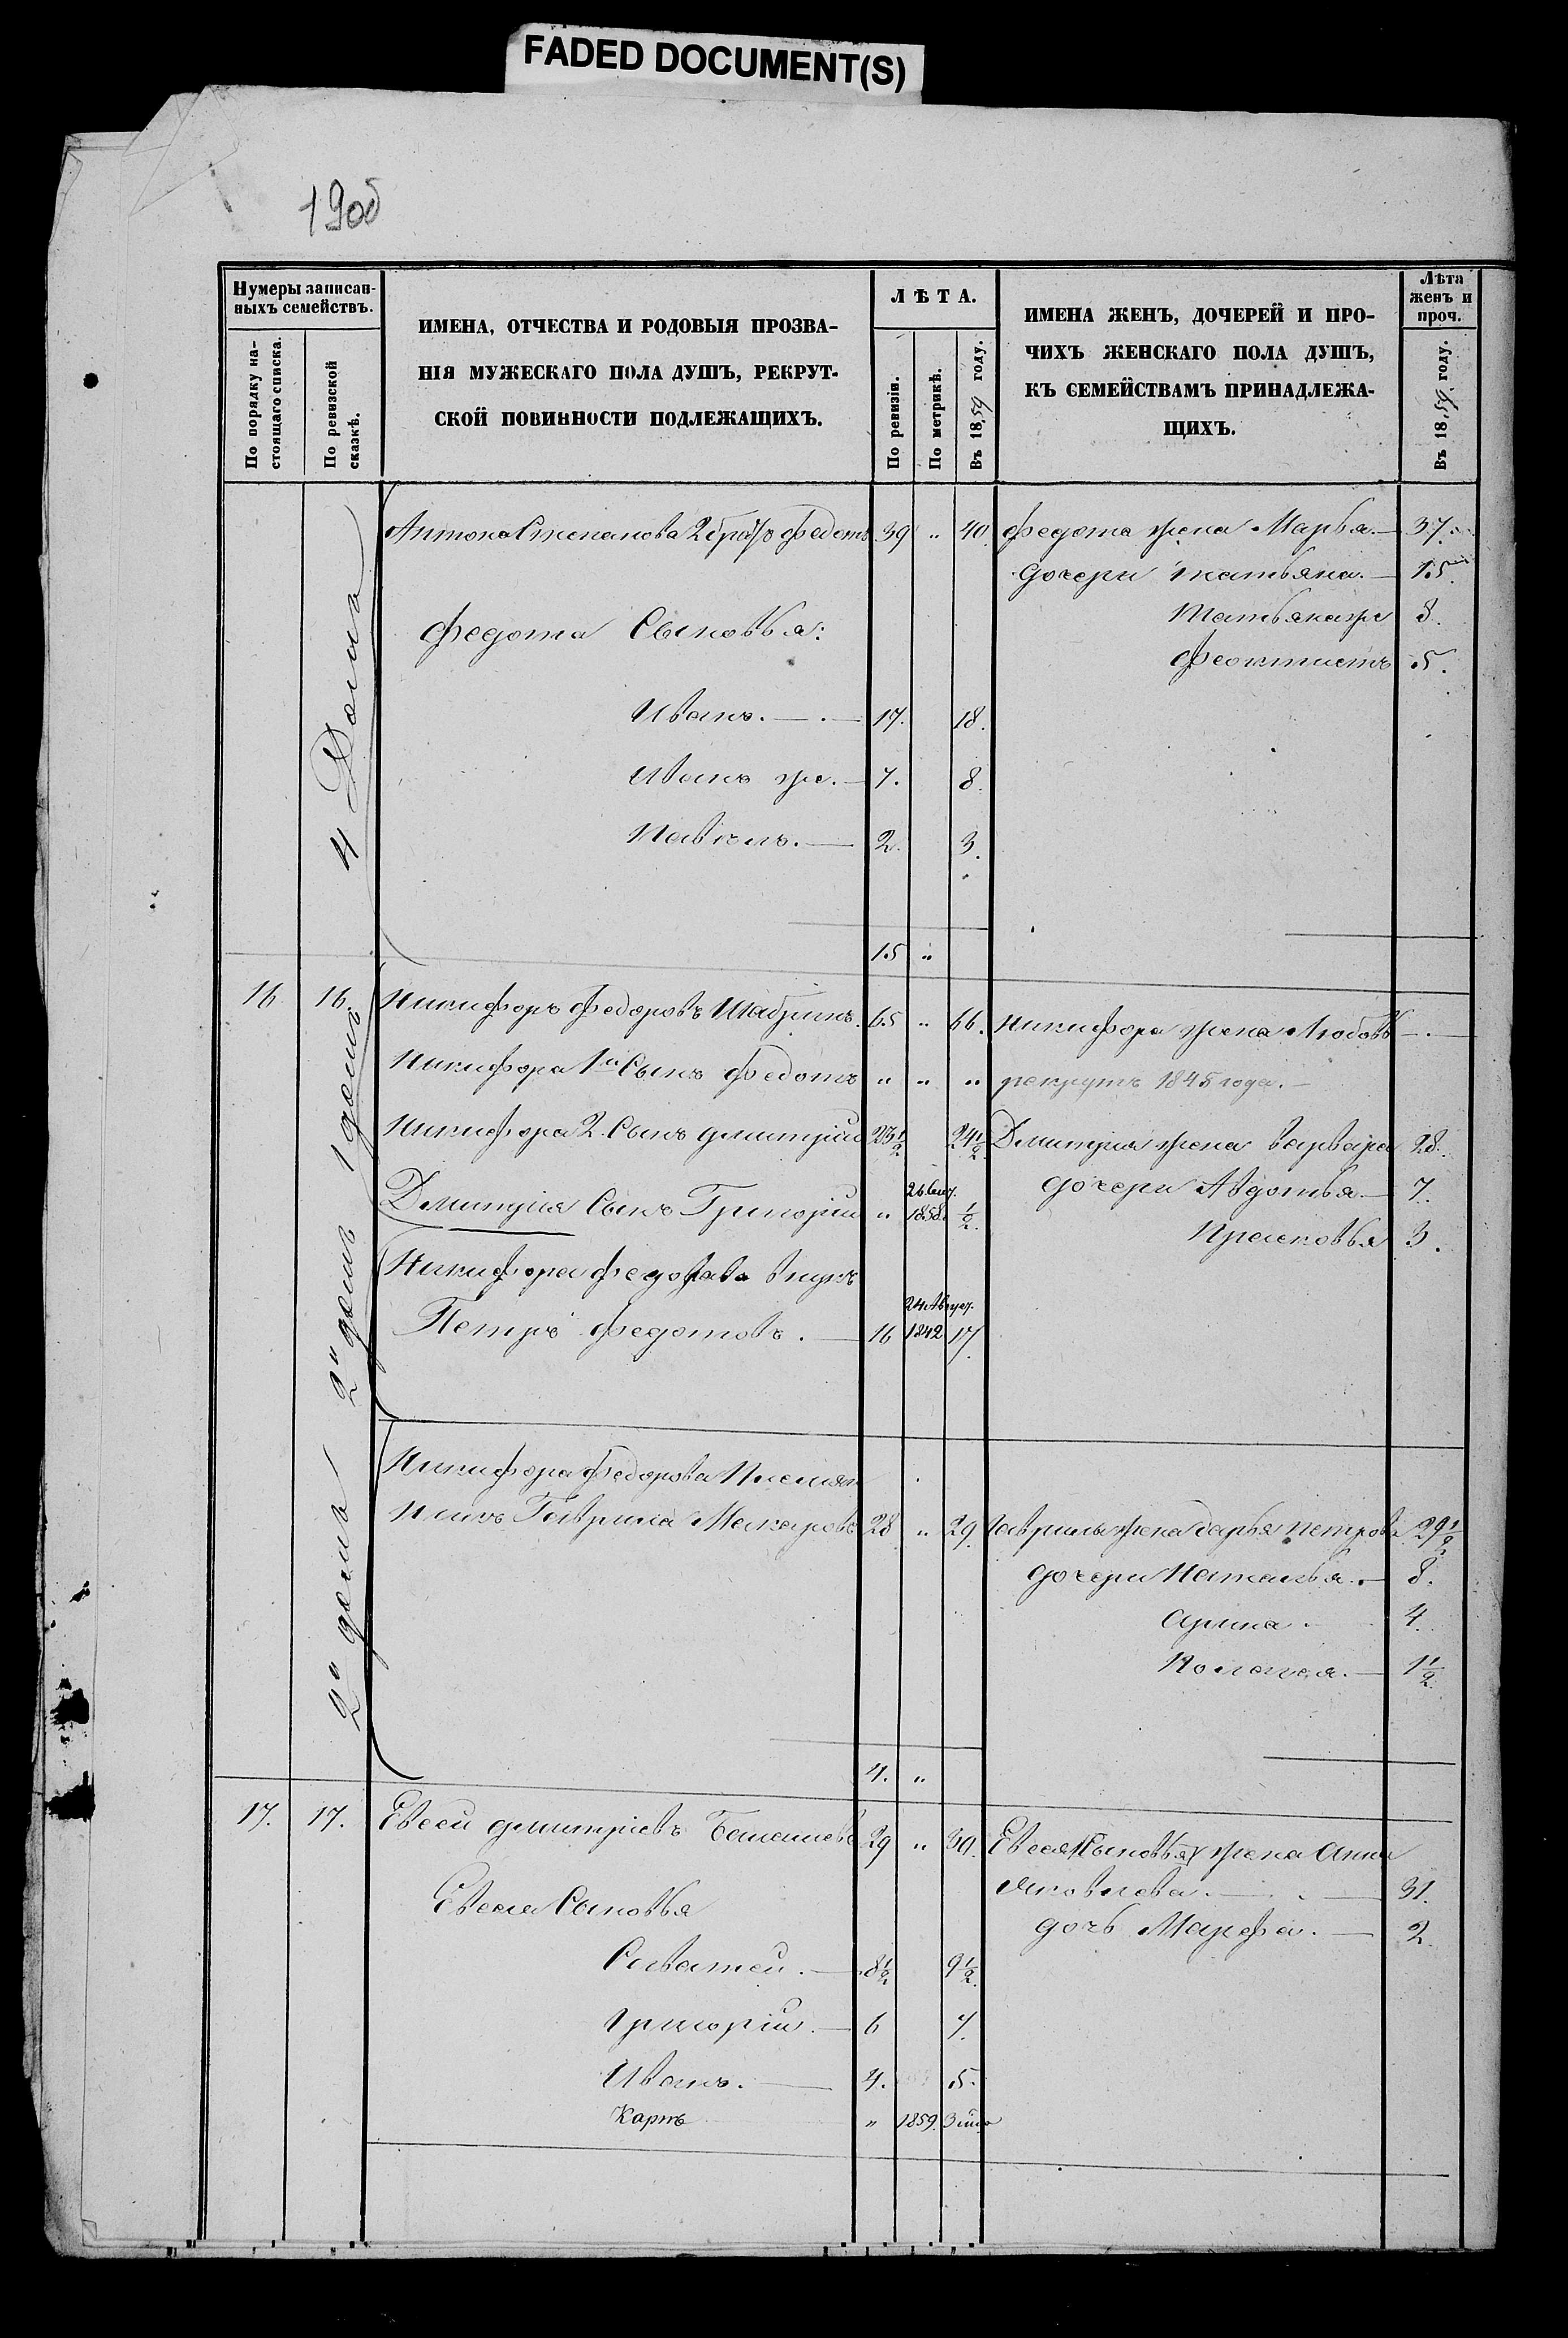 FADED DOCUMENT(S)
190об
Нумеры записан-
ныхъ семействъ.
По порядку на-
стоящаго списка.
По ревизской
сказкѣ.
ИМЕНА, ОТЧЕСТВА И РОДОВЫЯ ПРОЗВА-
НІЯ МУЖЕСКАГО ПОЛА ДУШЪ, РЕКРУТ-
СКОЙ ПОВИННОСТИ ПОДЛЕЖАЩИХЪ.
ЛѢТА.
По ревизіи.
По метрикѣ.
Въ 1859 году.
ИМЕНА ЖЕНЪ, ДОЧЕРЕЙ И ПРО-
ЧИХЪ ЖЕНСКАГО ПОЛА ДУШЪ,
КЪ СЕМЕЙСТВАМЪ ПРИНАДЛЕЖА-
ЩИХЪ.
Лѣта
женъ и
проч.
Въ 1859 году.
4 Дома
Антона Степанова 2 братъ Федотъ 39 " 40. Федота жена Марья. — 37.
дочери татьяна. — 15.
Татьяна же 8.
Федота Сыновья:
Феоктиста 5.
Иванъ. — 17. 18.
Иванъ же. — 7. 8.
Павелъ. — 2. 3.
15 "
16 16. Никифоръ Федоровъ 65 " 66. Никифора жена Любовь —.—
1 домъ
Никифора 1й Сынъ Федотъ " " " рекрутъ 1845 года. —
Никифора 2. Сынъ дмитрій 23½ 24½ Дмитрія жена варвара 28.
Дмитрія Сынъ Григорій " 26 Сент. 1858. ½ дочери Авдотья — 7.
Прасковья 3.
2й домъ
Никифора федорова внукъ
Петръ федотовъ. — 16 24 Август. 1842 17.
2й домъ
Никифора федорова Племян
никъ Гаврила Макаровъ 28 " 29. Гаврилы жена дарья петрова 29½
дочери Наталья. — 8.
арина. 4.
Пелагея. — 1½
4. "
17. 17. Евсей дмитріевъ 29 " 30. Евсея Сыновья жена Анна
Яковлева. — 31.
Евсея Сыновья
дочь Марфа. — 2.
Савватей. — 8½ 9½
григорій. — 6 7.
Иванъ. — 4. 5.
Карпъ " 1859.